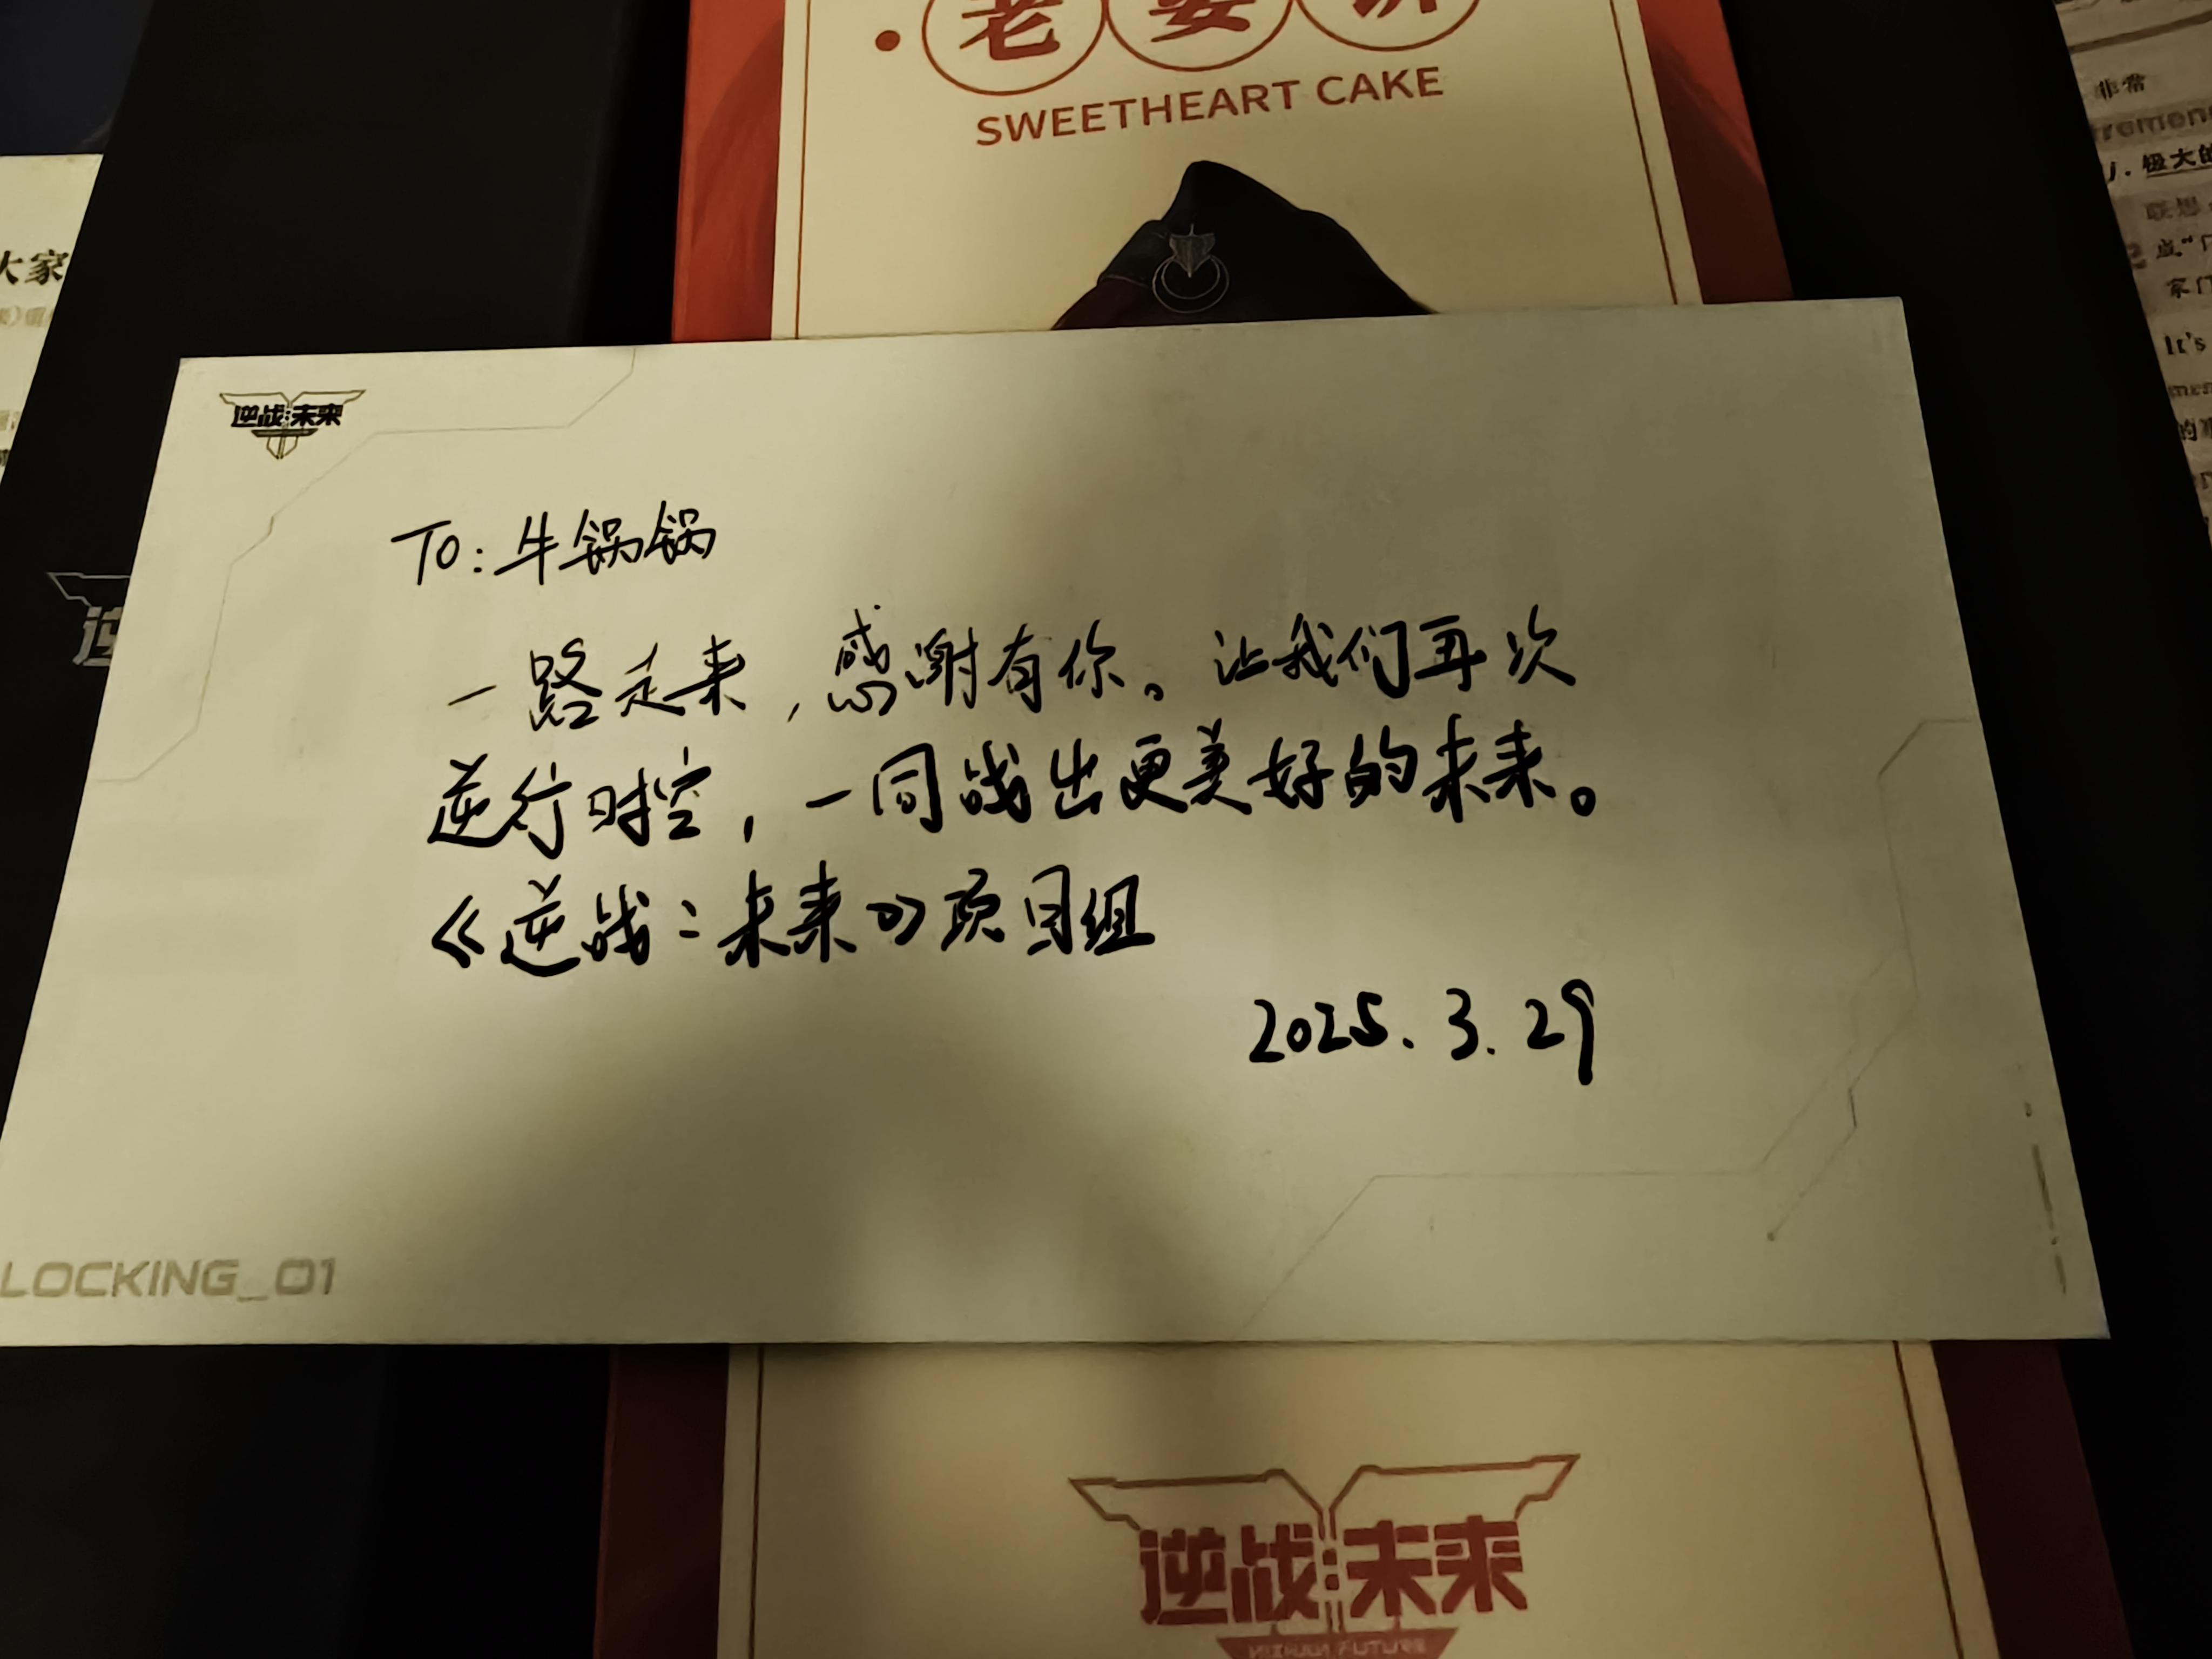 老婆饼
SWEETHEART CAKE
大家
非常
极大的
It's
逆战:未来
To:牛锅锅
一路走来,感谢有你。让我们再次
逆行时空,一同战出更美好的未来。
《逆战:未来》项目组
2025.3.29
LOCKING_01
逆战:未来